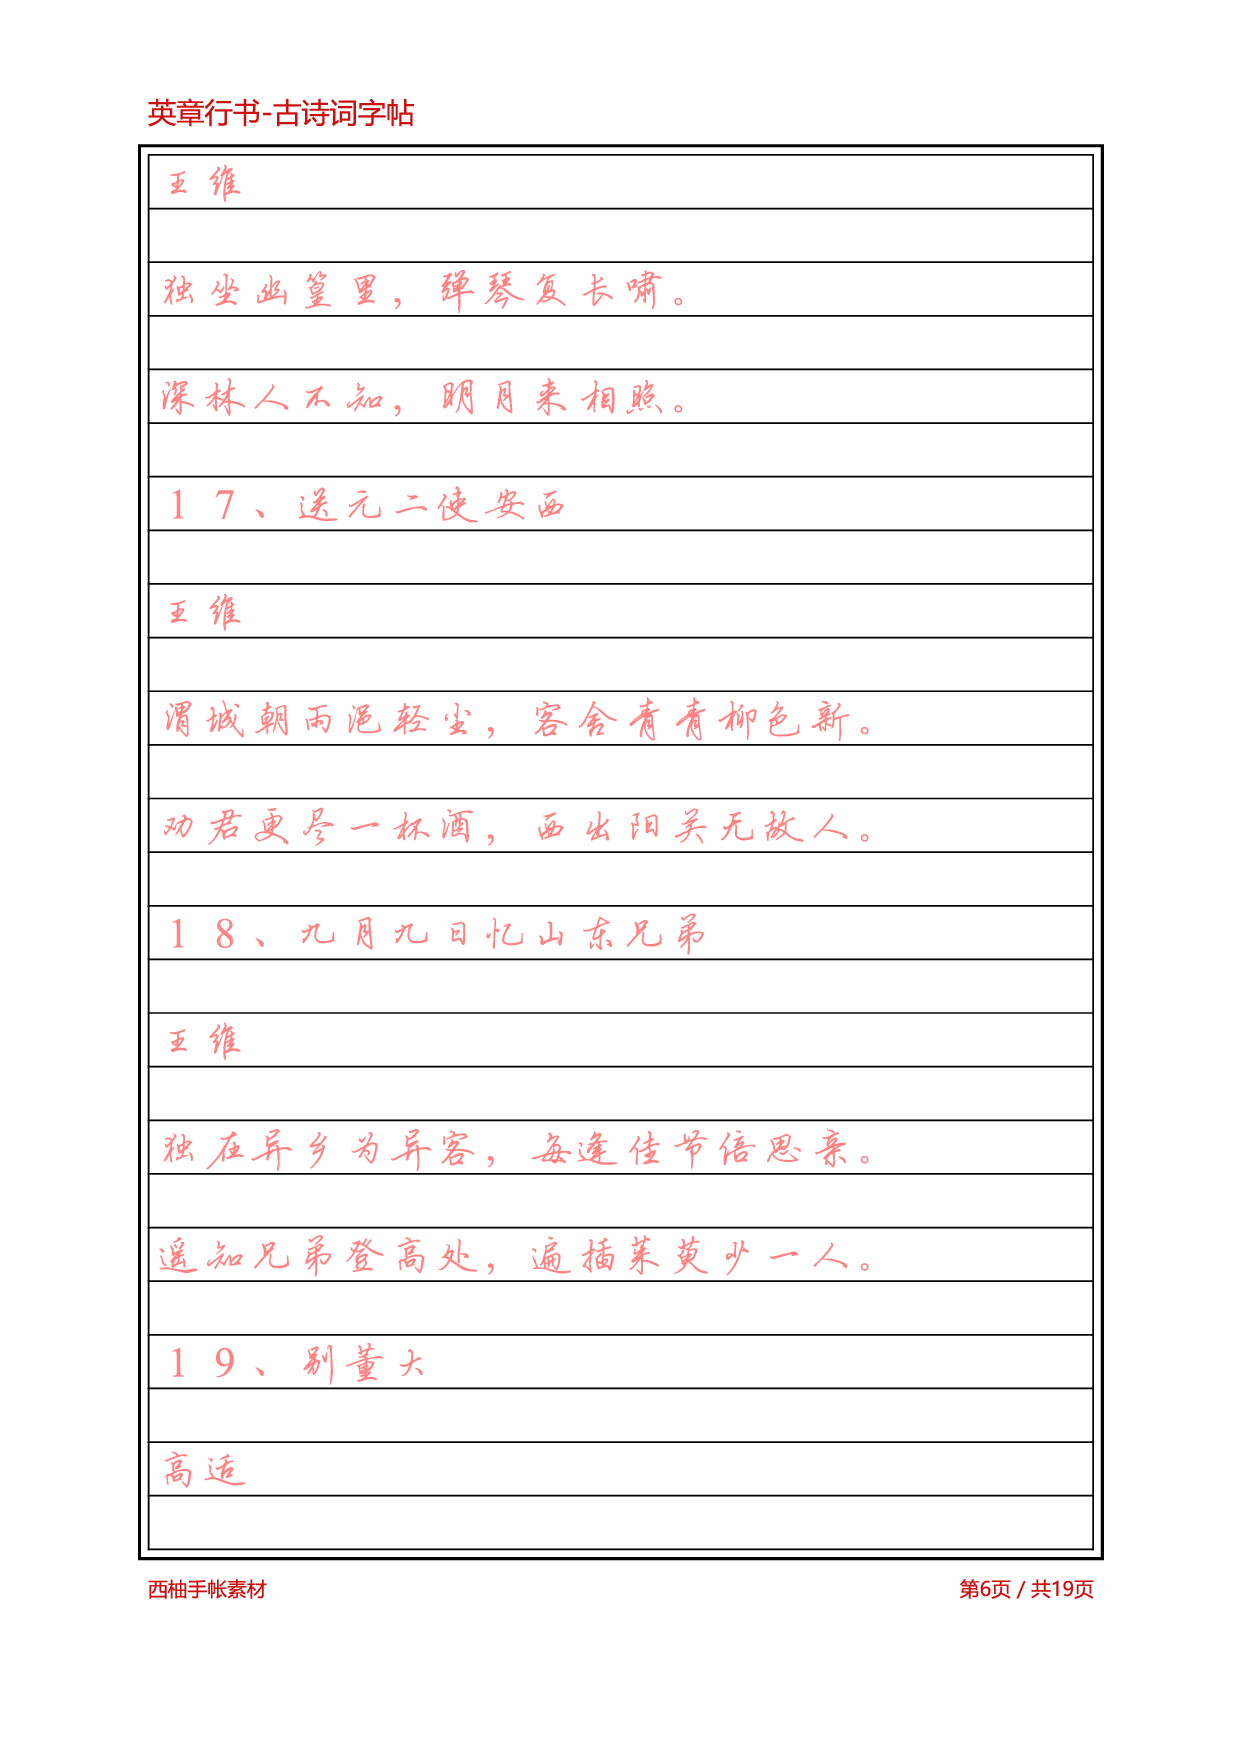 英章行书-古诗词字帖
王维
独坐幽篁里，弹琴复长啸。
深林人不知，明月来相照。
17、送元二使安西
王维
渭城朝雨浥轻尘，客舍青青柳色新。
劝君更尽一杯酒，西出阳关无故人。
18、九月九日忆山东兄弟
王维
独在异乡为异客，每逢佳节倍思亲。
遥知兄弟登高处，遍插茱萸少一人。
19、别董大
高适
西柚手帐素材
第6页 / 共19页